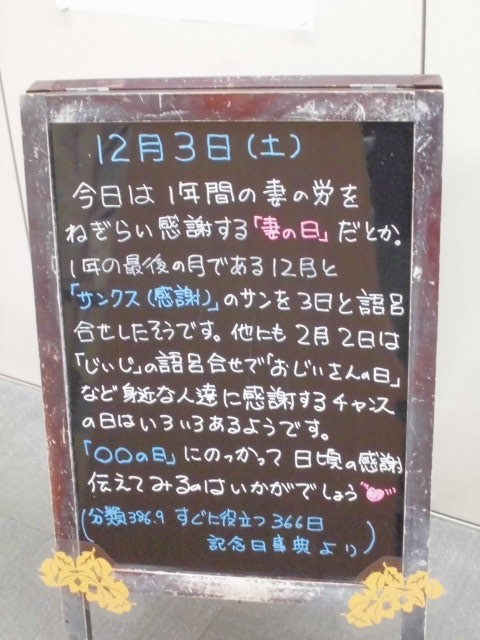 12月3日(土)
今日は1年間の妻の労を
ねぎらい感謝する「妻の日」だとか。
1年の最後の月である12月と
「サンクス(感謝)」のサンを3日と語呂
合せしたそうです。他にも2月2日は
「じぃじ」の語呂合せで「おじぃさんの日」
など身近な人達に感謝するチャンス
の日はいろいろあるようです。
「〇〇の日」にのっかって日頃の感謝
伝えてみるのはいかがでしょう
(分類386.9 すぐに役立つ366日
記念日事典より)